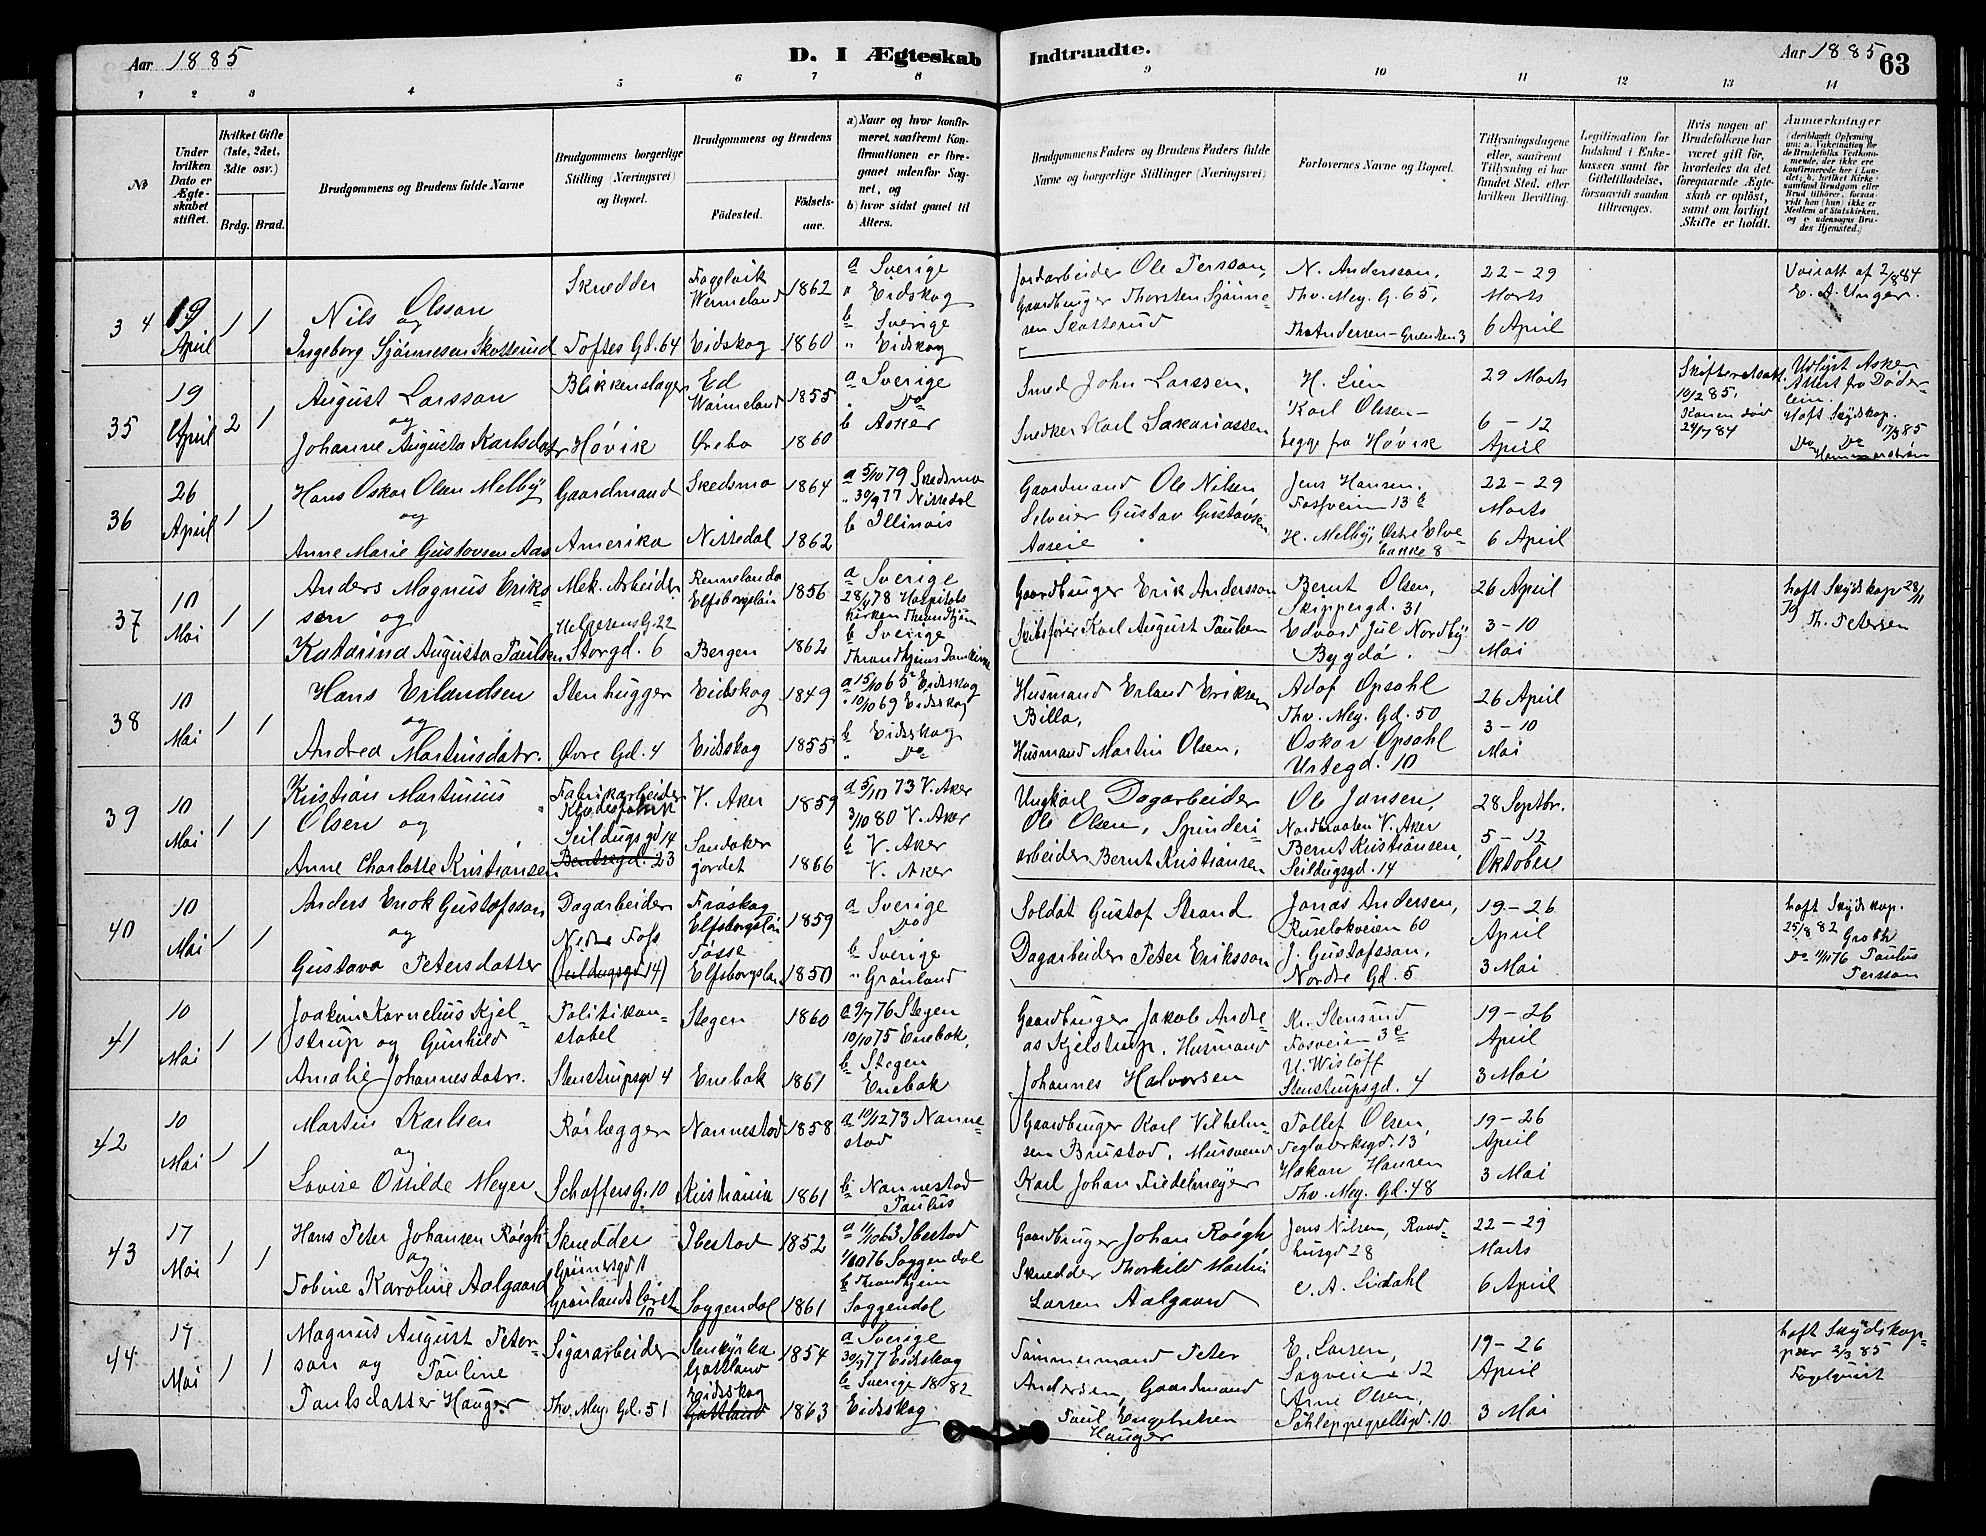 Aar 1885
D. I Ægteskab
Indtraadte.
Aar 1885
63
1 2 3 4 5 6 7 8 9 10 11 12 13 14
№
Under hvilken Dato er Ægteskabet stiftet.
Hvilket Gifte (1ste, 2det, 3die osv.)
Brdg. Brud.
Brudgommens og Brudens fulde Navne
Brudgommens borgerlige Stilling (Næringsvei) og Bopæl.
Brudgommens og Brudens
Fødested.
Fødselsaar.
a) Naar og hvor konfirmeret, saafremt Konfirmationen er foregaaet udenfor Sognet, og
b) hvor sidst gaaet til Alters.
Brudgommens Faders og Brudens Faders fulde Navne og borgerlige Stillinger (Næringsvei)
Forlovernes Navne og Bopæl.
Tillysningsdagene eller, saafremt Tillysning ei har fundet Sted, efter hvilken Bevilling.
Legitimation for Indskud i Enkekassen samt for Giftetilladelse, forsaavidt saadan tiltrænges.
Hvis nogen af Brudefolkene har været gift før, hvorledes da det foregaaende Ægteskab er opløst, samt om lovligt Skifte er holdt.
Anmærkninger
(deriblandt Oplysning om: a. Vakcination for de Brudefolks Vedkommende, der ikke ere konfirmerede her i Landet; b. hvilket Kirkesamfund Brudgom eller Brud tilhører, forsaavidt han (hun) ikke er Medlem af Statskirken, og c. udensogns Brudes Hjemsted.)
34
19
April
1 1
Nils Olsson
og
Ingeborg Sjønnesen Skotterud
Skrædder
Toftes Gd. 64
Foggelvik
Wermeland 1862
Eidskog 1860
a Sverige
" Eidskog
b Sverige
" Eidskog
Jordarbeider Ole Persson,
Gaardbruger Thorsten Sjønne-
sen Skotterud
N. Andersson,
Thv. Mey. G. 65,
Th Andersen - Grændsen 3
22 - 29
Marts
6 April
Voiratt af 2/8 84
E. A. Unger.
35
19
April
2 1
August Larsson
og
Johanne Augusta Karlsdatr
Blikkenslager
Høvik
Ed
Wärmeland 1855
Ørebo 1860
a Sverige
" Do
b Asker
Smed John Larssen,
Snedker Karl Sakariassen
H. Lien
Karl Olsen -
begge fra Høvik
29 Marts
6 - 12
April
Skifteretsatt.
10/2 85,
Konen død
24/7 84
Udlyst Asker
Attest fra Døder-
lein.
Haft Skydskop.
Do Do 17/3 85
36
26
April
1 1
Hans Oskar Olsen Melby
og
Anne Marie Gustavsen Aas
Gaardmand
Amerika
Skedsmo 1864
Nittedal 1862
a 5/10 79 Skedsmo
" 30/9 77 Nittedal
b Illinois
Gaardmand Ole Nilsen
Selveier Gustav Gustavsen
Aaseie
Jens Hansen,
Fossveien 13 b
H. Melby, Østre Elve-
bakke 8
22 - 29
Marts
6 April
37
10
Mai
1 1
Anders Magnus Eriks-
son og
Katarina Augusta Paulsen
Mek. Arbeider
Helgesens G. 22
Storgd. 6
Rennelanda
Elfsborgslän 1856
Bergen 1862
a Sverige
28/4 78 Hospitals
kirken Throndhjem
b Sverige
Throndhjems Domkirke
Gaardbruger Erik Andersson
Skibsfører Karl August Paulsen
Bernt Olsen,
Skippergd. 31
Edvard Jul Nordby
Bygdø.
26 April
3 - 10
Mai
haft Skydskop 28/11
Th. Petersen
38
10
Mai
1 1
Hans Erlandsen
og
Andrea Martinsdatr.
Stenhugger
Øvre Gd. 4
Eidskog 1849
Eidskog 1855
a 15/10 65 Eidskog
" 10/10 69 Eidskog
b Eidskog
" Do
Husmand Erland Eriksen
Billa,
Husmand Martin Olsen,
Adof Opsahl
Thv. Mey. Gd. 50
Oskar Opsahl
Urtegd. 10
26 April
3 - 10
Mai
39
10
Mai
1 1
Kristian Martinius
Olsen og
Anne Charlotte Kristiansen
Fabrikarbeider
Klædesfabrik
Seildugsgd 14
Bentsegd. 23
V. Aker 1859
Sandaker
jordet 1866
a 5/10 73 V. Aker
3/10 80 V. Aker
b V. Aker
V. Aker
Ungkarl Dagarbeider
Ole Olsen, Spinderi-
arbeider Bernt Kristiansen
Ole Jansen,
Nordbraaten V. Aker
Bernt Kristiansen,
Seildugsgd. 14
28 Septbr.
5 - 12
Oktober
40
10
Mai
1 1
Anders Enok Gustafsson
og
Gustava Petersdatter
Dagarbeider
Nedre Foss
(Seildugsgd 14)
Fröskog
Elfsborgslän 1859
Tösse
Elfsborgslan 1850
a Sverige
Do
b Sverige
" Grønland
Soldat Gustof Strand
Dagarbeider Peter Eriksson
Jonas Andersen,
Ruseløkveien 60
J. Gustafsson,
Nordre Gd. 5
19 - 26
April
3 Mai
haft Skydskop.
25/8 82 Groth
Do 11/11 76 Paulus
Persson
41
10
Mai
1 1
Joakim Kornelius Kjel-
strup og Gunhild
Amalie Johannesdatr.
Politikon-
stabel
Stenstrupsgd 4
Stegen 1860
Enebak 1861
a 9/7 76 Stegen
10/10 75 Enebak,
b Stegen
Enebak
Gaardbruger Jakob Andre-
as Kjelstrup, Husmand
Johannes Halvorsen
Kr. Stensrud
Fosveien 3 c
U. Wisløff
Stenstrupsgd. 4
19 - 26
April
3 Mai
42
10
Mai
1 1
Martin Karlsen
og
Lovise Otilde Meyer
Rørlægger
Schoffers G. 10
Nannestad 1858
Kristiania 1861
a 10/12 73 Nanne-
stad
b Nannestad
Paulus
Gaardbruger Karl Vilhelm-
sen Brustad, Mursvend
Karl Johan Fredr. Meyer
Tollef Olsen,
Teglverksgd. 13
Hakon Hansen
Thv. Mey. Gd. 48
19 - 26
April
3 Mai
43
17
Mai
1 1
Hans Peter Johansen Røegh
og
Tobine Karoline Aalgaard
Skrædder
Grünersgd 11
Grønlands Leret
10
Ibestad 1852
Soggendal 1861
a 1/10 63 Ibestad
1/10 76 Soggendal
b Throndhjem
Soggendal
Gaardbruger Johan Røegh
Skrædder Thorkild Martin
Larsen Aalgaard
Jens Nilsen, Raad-
husgd 28
C. A. Lindahl
22 - 29
Marts
6 April
44
17
Mai
1 1
Magnus August Peter-
son og Pauline
Paulsdatter Hauger
Sigararbeider
Thv. Mey. Gd. 51
Stenkyrka
Gottland 1854
Eidskog
Gottland 1863
a Sverige
30/9 77 Eidskog
b Sverige 1882
Eidskog
Tømmermand Peter
Andersen, Gaardmand
Paul Engebretsen
Hauger
E. Larsen,
Sagveien 12
Arne Olsen,
Schleppegrellsgd. 10
19 - 26
April
3 Mai
haft Skydskop-
per 2/3 85
Fogelqvist